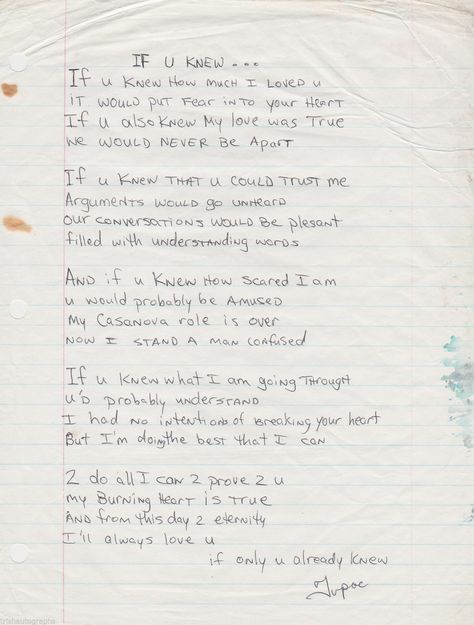 IF U KNEW ...
If u KNEW How much I Loved u
iT would PUT FEAR iNTO your HEART
If u alsoKNEW My love was TRUE
We WOULD NEVER Be ApART
If u KNEW THAT u COULD TRUST me
ARguments WOULD go UNHEARD
Our conversations WOULD BE plesant
filled with understanding words
AND if u KNEW How scared I am
u would probably be Amused
my Casanova role is over
NOW I STAND A man confused
If u KNEW what I am going Through
u'D probably understand
I had NO intentions of BREAking your heart
But I'm doing the best that I can
2 do all I can 2 prove 2 u
my Burning Heart is True
AND from this day 2 eternity
I'll always love u
if only u already KNEW
Tupac
trishautographs